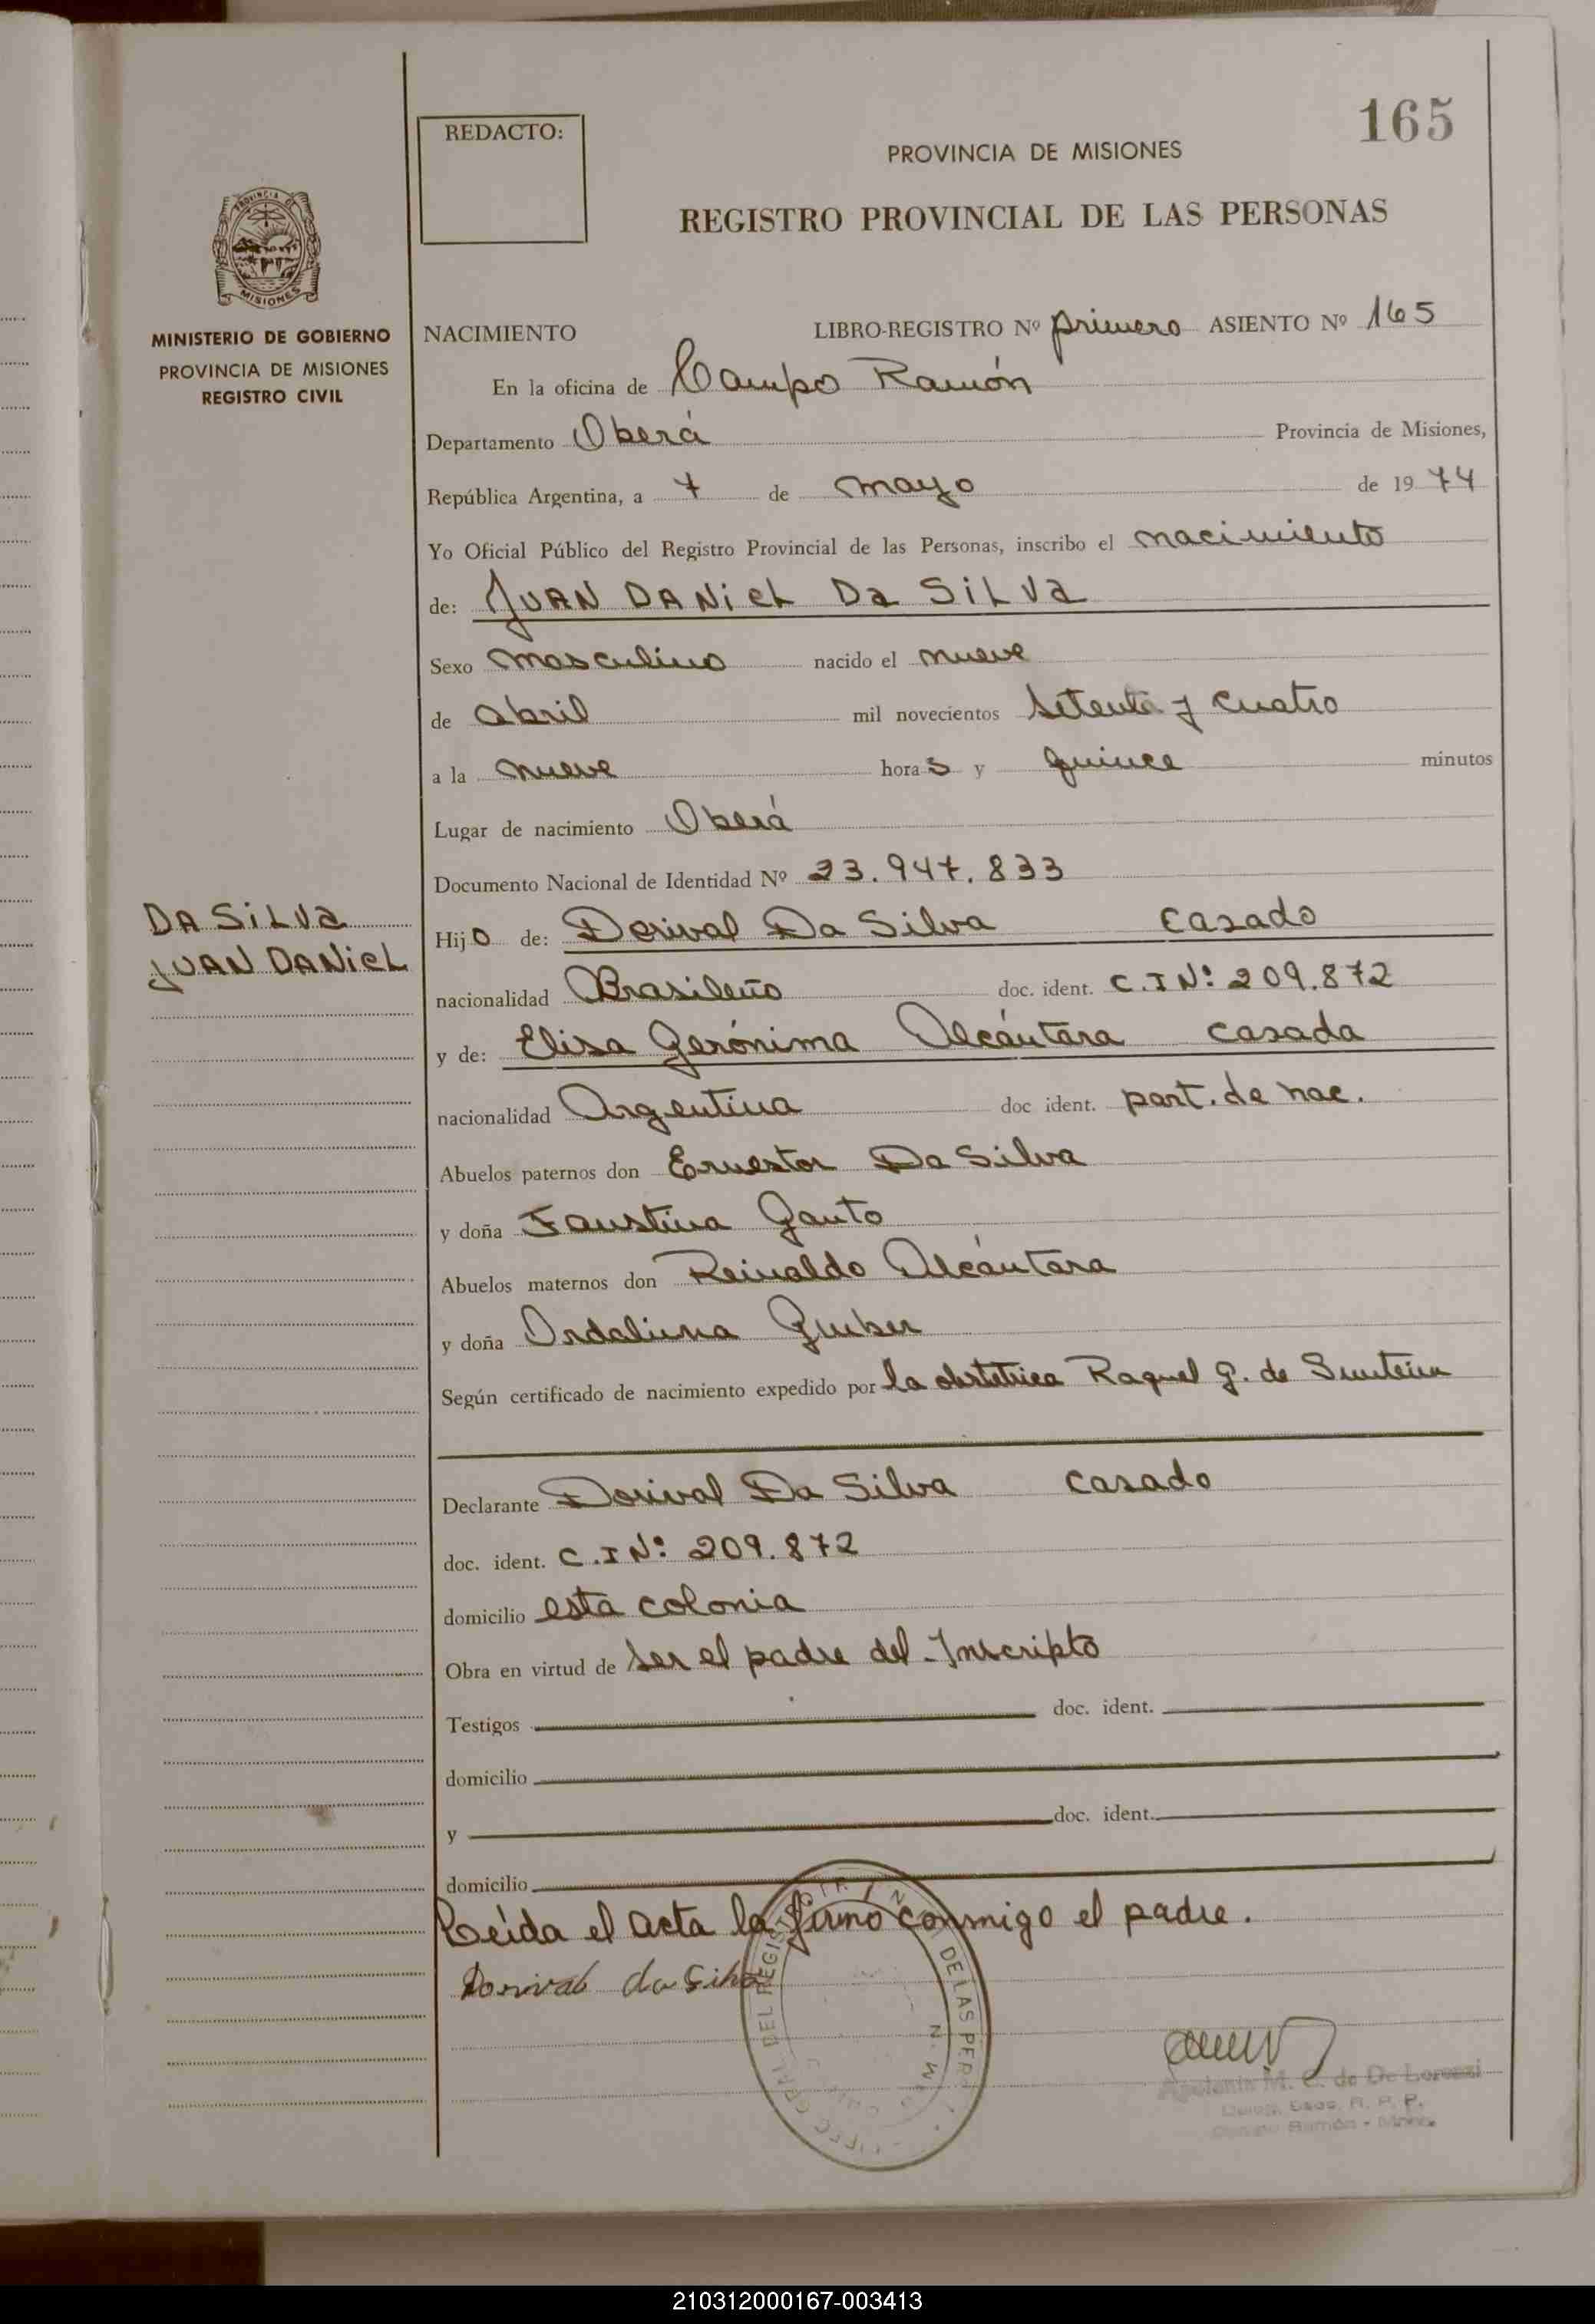 165
REDACTO:
PROVINCIA DE MISIONES
REGISTRO PROVINCIAL DE LAS PERSONAS
MISIONES
MINISTERIO DE GOBIERNO
PROVINCIA DE MISIONES
REGISTRO CIVIL
NACIMIENTO LIBRO-REGISTRO Nº primero ASIENTO Nº 165
En la oficina de Campo Ramón
Departamento Oberá Provincia de Misiones,
República Argentina, a 7 de mayo de 1974
Yo Oficial Público del Registro Provincial de las Personas, inscribo el nacimiento
de: JUAN DANIEL Da SILVa
Sexo masculino nacido el nueve
de abril mil novecientos setenta y cuatro
a la nueve horas y quince minutos
Lugar de nacimiento Oberá
Documento Nacional de Identidad Nº 23.947.833
DA SILVa
JUAN DANIEL
Hijo de: Dorival Da Silva casado
nacionalidad Brasileño doc. ident. C.I Nº: 209.872
y de: Elisa Gerónima Alcántara casada
nacionalidad Argentina doc ident. part. de nac.
Abuelos paternos don Ernestor Da Silva
y doña Faustina Gauto
Abuelos maternos don Reinaldo Alcántara
y doña Ordalina
Según certificado de nacimiento expedido por la obstetrica Raquel G. de
Declarante Dorival Da Silva casado
doc. ident. C.I Nº: 209.872
domicilio esta colonia
Obra en virtud de ser el padre del Inscripto
Testigos doc. ident.
domicilio
y doc. ident.
domicilio
Leída el acta la firmó conmigo el padre.
Dorival da Silva
M. C. de De Lorenzi
R. P. P.
Ramón
210312000167-003413